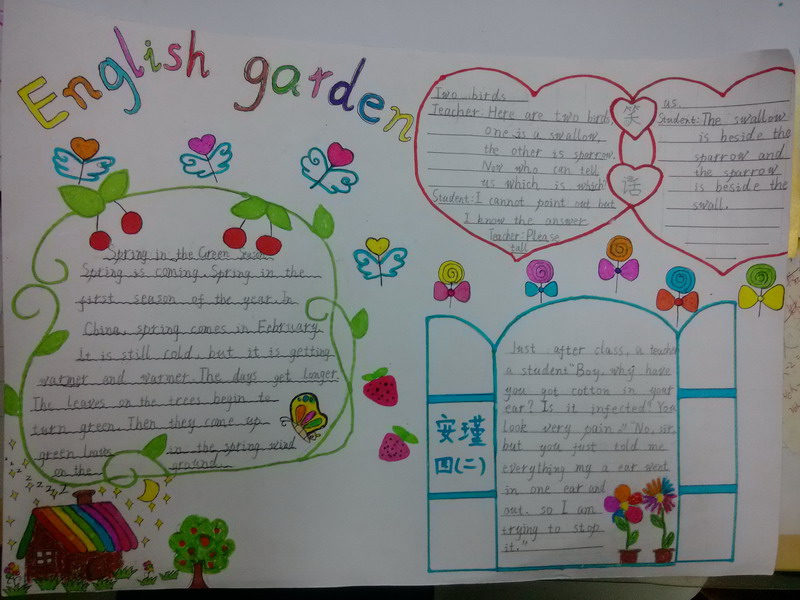 English garden
Spring in the Green Season
Spring is coming. Spring in the
first season of the year. In
China, spring comes in February
It is still cold, but it is getting
warmer and warmer. The days get longer
The leaves on the trees begin to
turn green. Then they come up,
green leaves in the spring wind
on the ground.
Two birds
Teacher: Here are two birds,
one is a swallow,
the other is sparrow.
Now who can tell
us which is which?
Student: I cannot point out but
I know the answer
Teacher: Please
tall
笑
话
us.
Student: The swallow
is beside the
sparrow and
the sparrow
is beside the
swall.
安瑾
四(二)
Just after class, a teacher
a student "Boy, why have
you got cotton in your
ear? Is it infected? You
look very pain." "No, sir,
but you just told me
everything my a ear went
in one ear and
out. so I am
trying to stop
it."
zzzzz